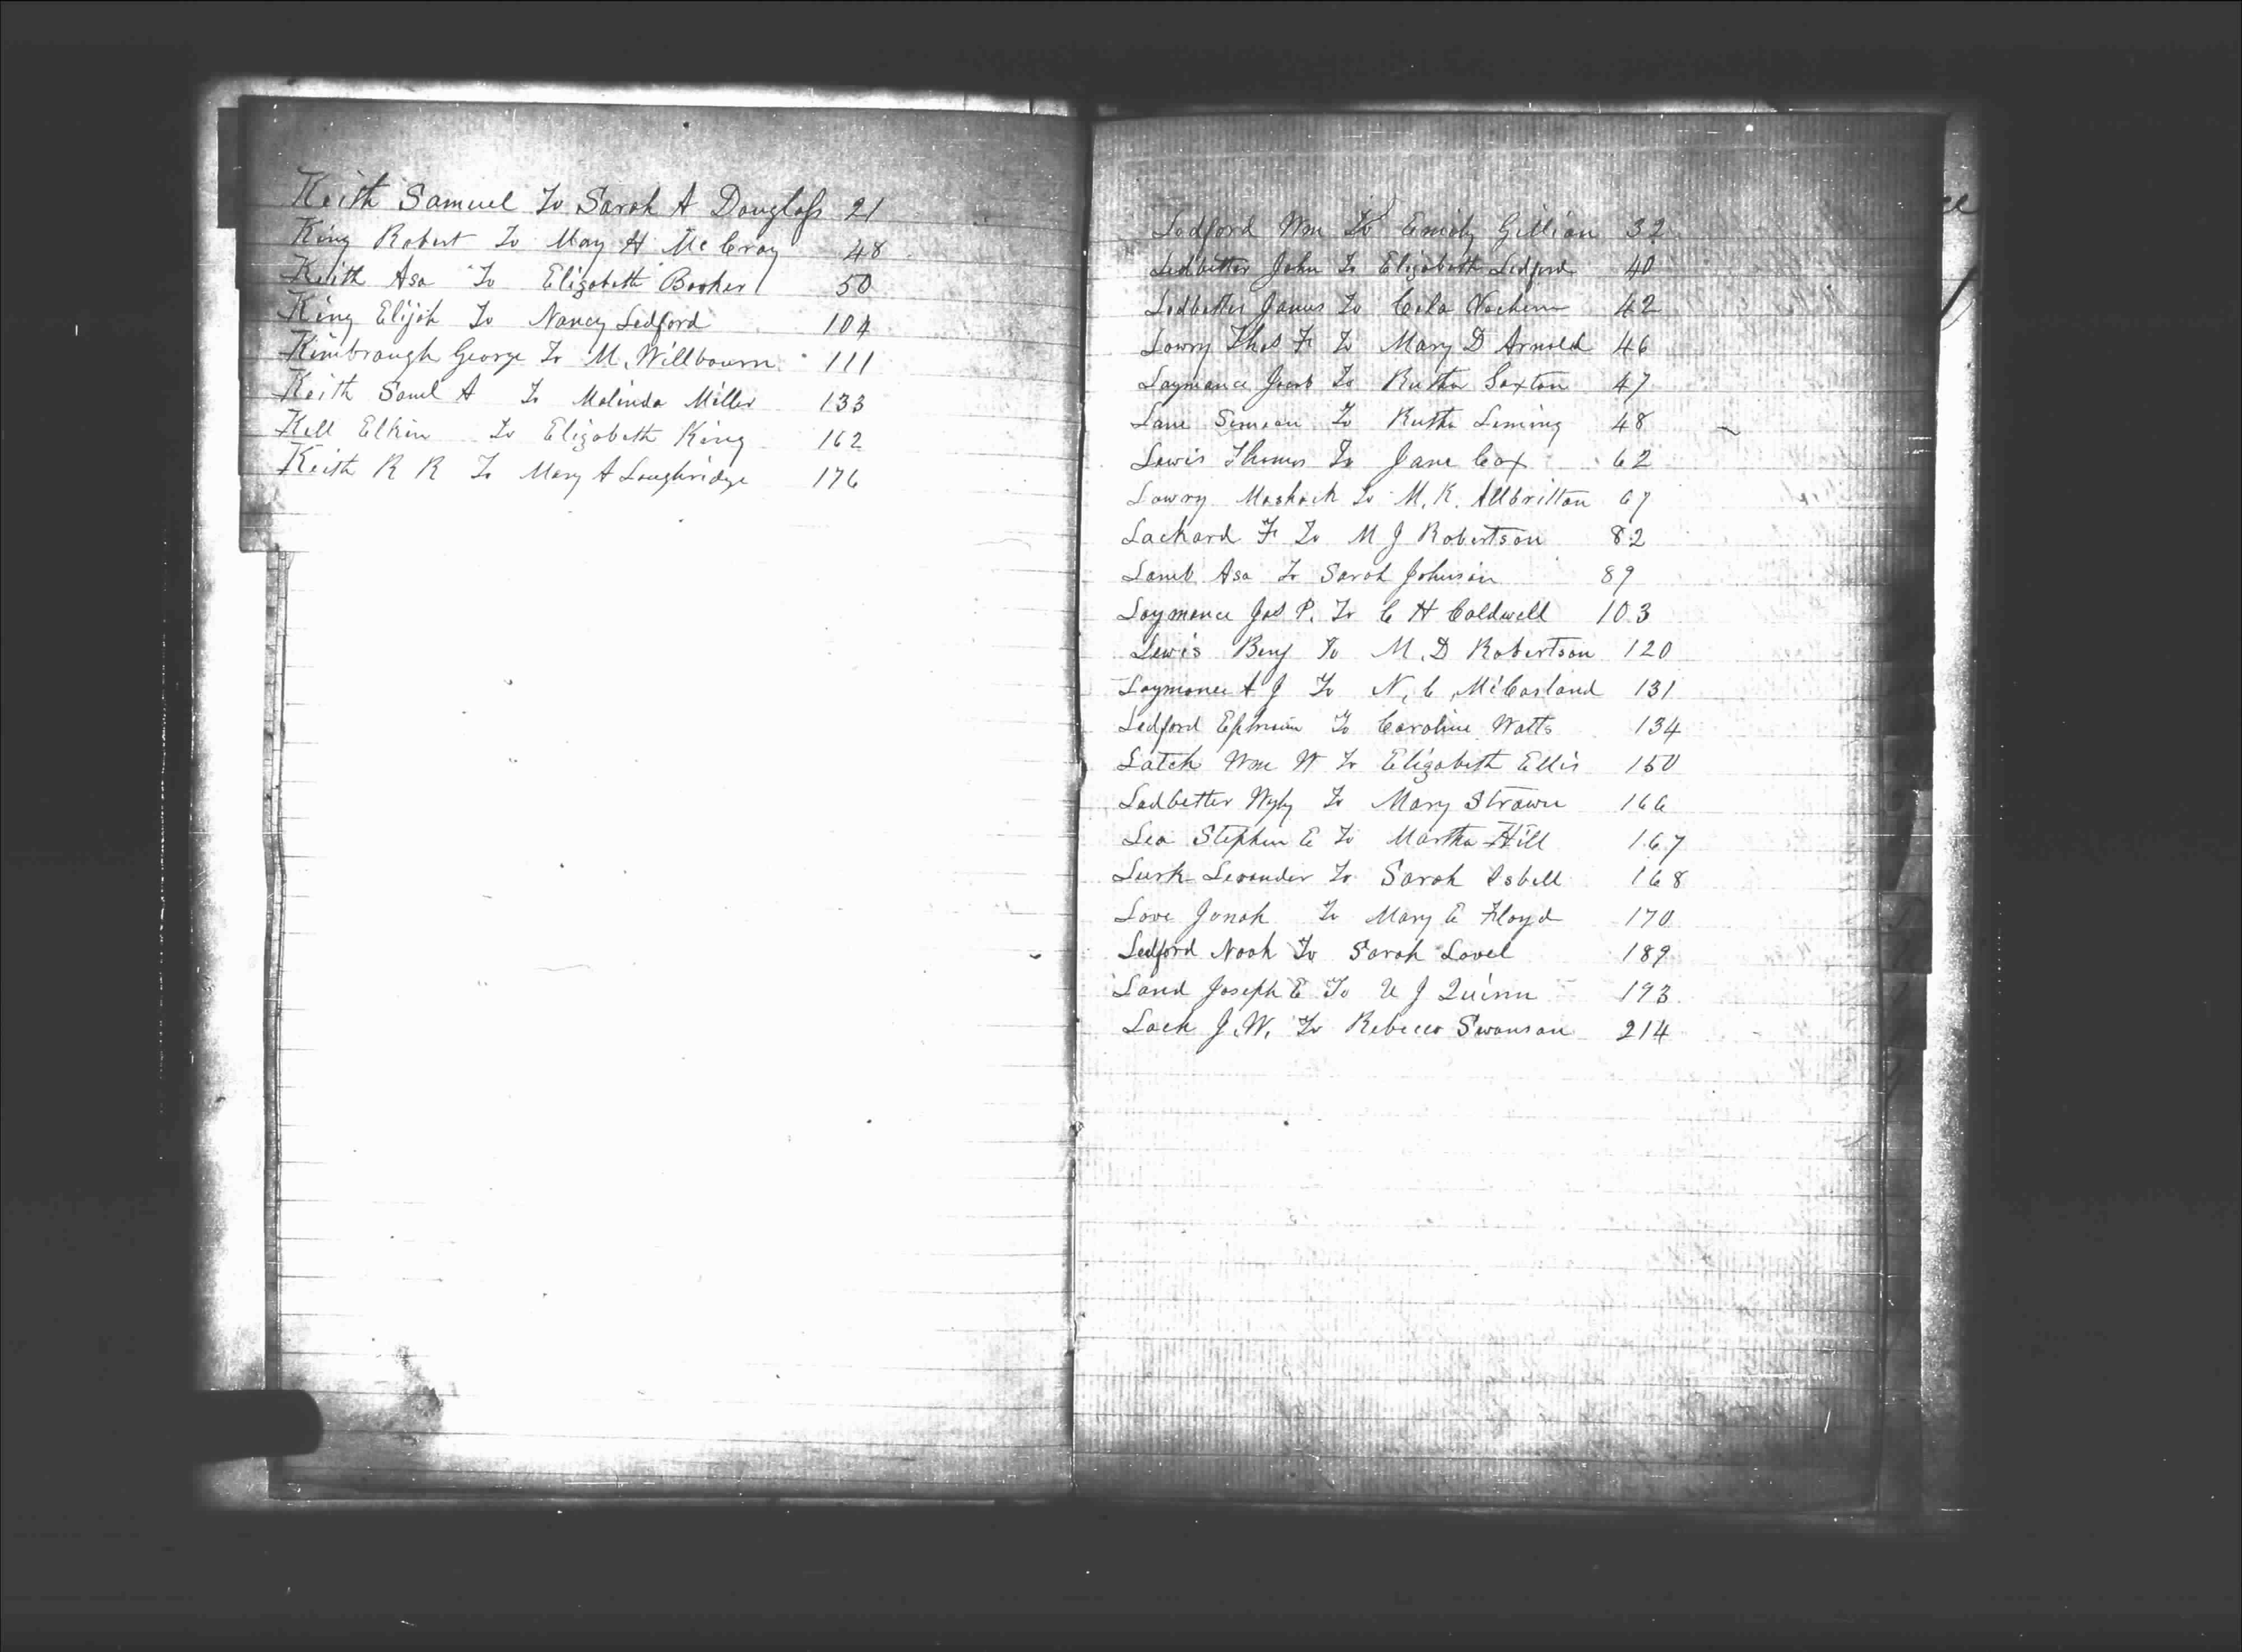 Keith Samuel To Sarah A Douglass 21
King Robert To May H McCray 48
Keith Asa To Elizabeth Booker 50
King Elijah To Nancy Ledford 104
Kimbrough George To M. Willbourn 111
Keith Saml A To Malinda Miller 133
Kell Elkin To Elizabeth King 162
Keith R R To Mary A Loughridge 176
Ledford Wm To Emily Gillian 32
Ledbetter John To Elizabeth Ledford 40
Ledbetter James To Cela 42
Lowry Thos F To Mary D Arnold 46
Laymance Jacob To Rutha Saxton 47
Lane Simeon To Rutha Leming 48
Lewis Thomas To Jane Cox 62
Lowry Mashack To M. K. Allbritton 67
Lackard F To M J Robertson 82
Lamb Asa To Sarah Johnson 89
Laymance Jas P. To C H Caldwell 103
Lewis Benj To M. D Robertson 120
Laymance A J To N, C, McCasland 131
Ledford Ephraim To Caroline Watts 134
Latch Wm W To Elizabeth Ellis 150
Ledbetter Wyly To Mary Strawn 166
Lea Stephen E To Martha Hill 167
Lusk Levander To Sarah Isbell 168
Love Jonah To Mary E Floyd 170
Ledford Noah To Sarah Lovel 189
Land Joseph E To U J Quinn 193
Lack J. W. To Rebecca Swanson 214